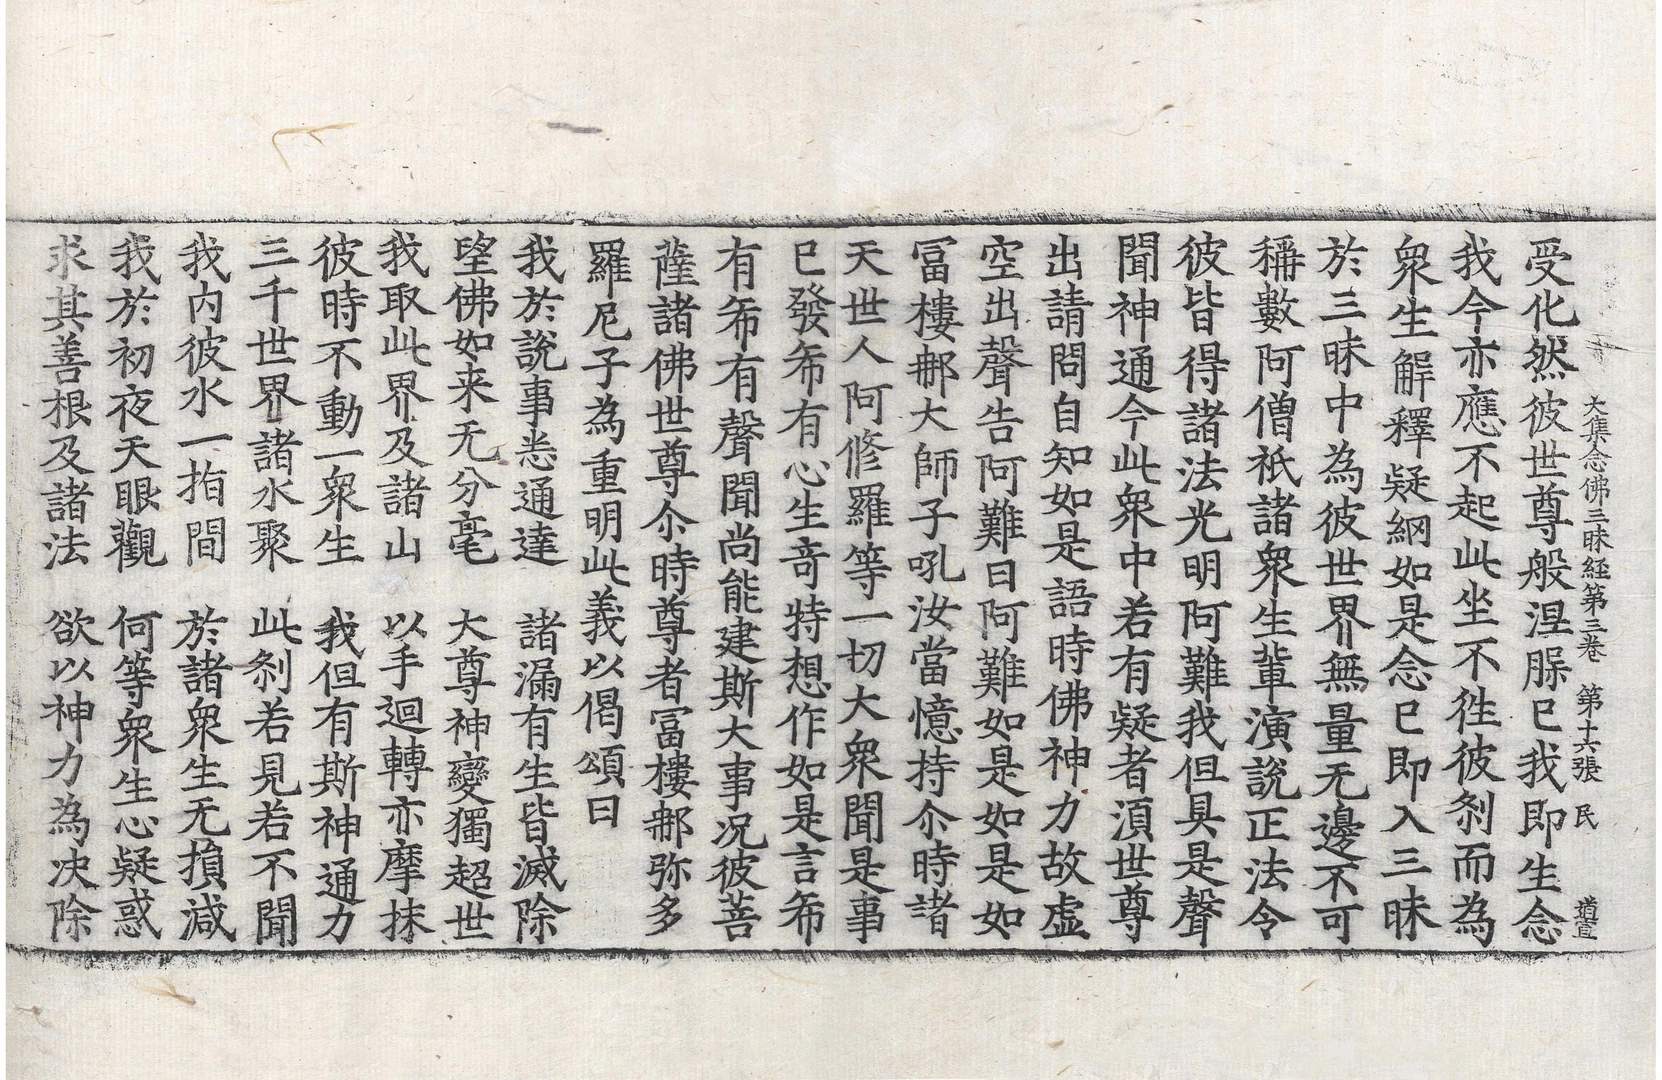 大集念佛三昧経第三卷　第十六張　民　道宣
受化然彼世尊般涅脲已我即生念
我今亦應不起此坐不往彼刹而為
衆生解釋疑網如是念已即入三昧
於三昧中為彼世界無量无邊不可
稱數阿僧祇諸衆生輩演說正法令
彼皆得諸法光明阿難我但具是聲
聞神通今此衆中若有疑者湏世尊
出請問自知如是語時佛神力故虛
空出聲告阿難曰阿難如是如是如
冨樓那大師子吼汝當憶持尒時諸
天世人阿修羅等一切大衆聞是事
已發希有心生竒特想作如是言希
有希有聲聞尚能建斯大事况彼菩
薩諸佛世尊尒時尊者冨樓那弥多
羅尼子為重明此義以偈頌曰
我於說事悉通達　諸漏有生皆滅除
望佛如来无分毫　大尊神變獨超世
我取此界及諸山　以手迴轉亦摩抹
彼時不動一衆生　我但有斯神通力
三千世界諸水聚　此刹若見若不聞
我内彼水一指間　於諸衆生无損減
我於初夜天眼觀　何等衆生心疑惑
求其善根及諸法　欲以神力為决除